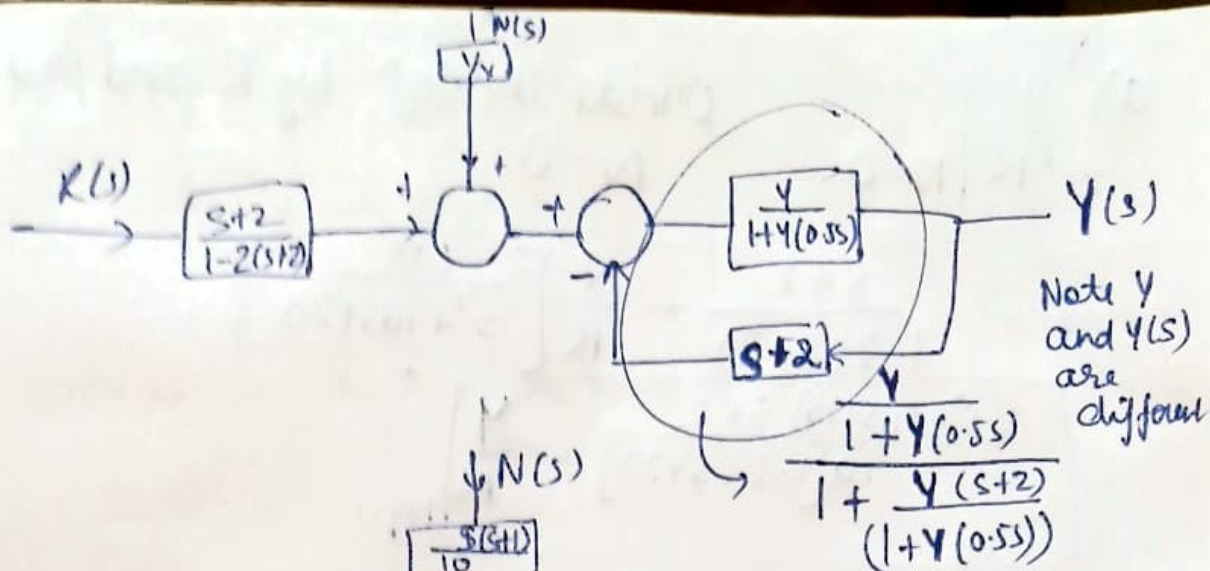 N(s)
1/Y
R(s)
s+2
1-2(s+2)
+
+
+
-
Y
1+Y(0.5s)
Y(s)
s+2
Note Y
and Y(s)
are
different
Y
1+Y(0.5s)
1+ Y(s+2)
(1+Y(0.5s))
N(s)
s(s+1)
10